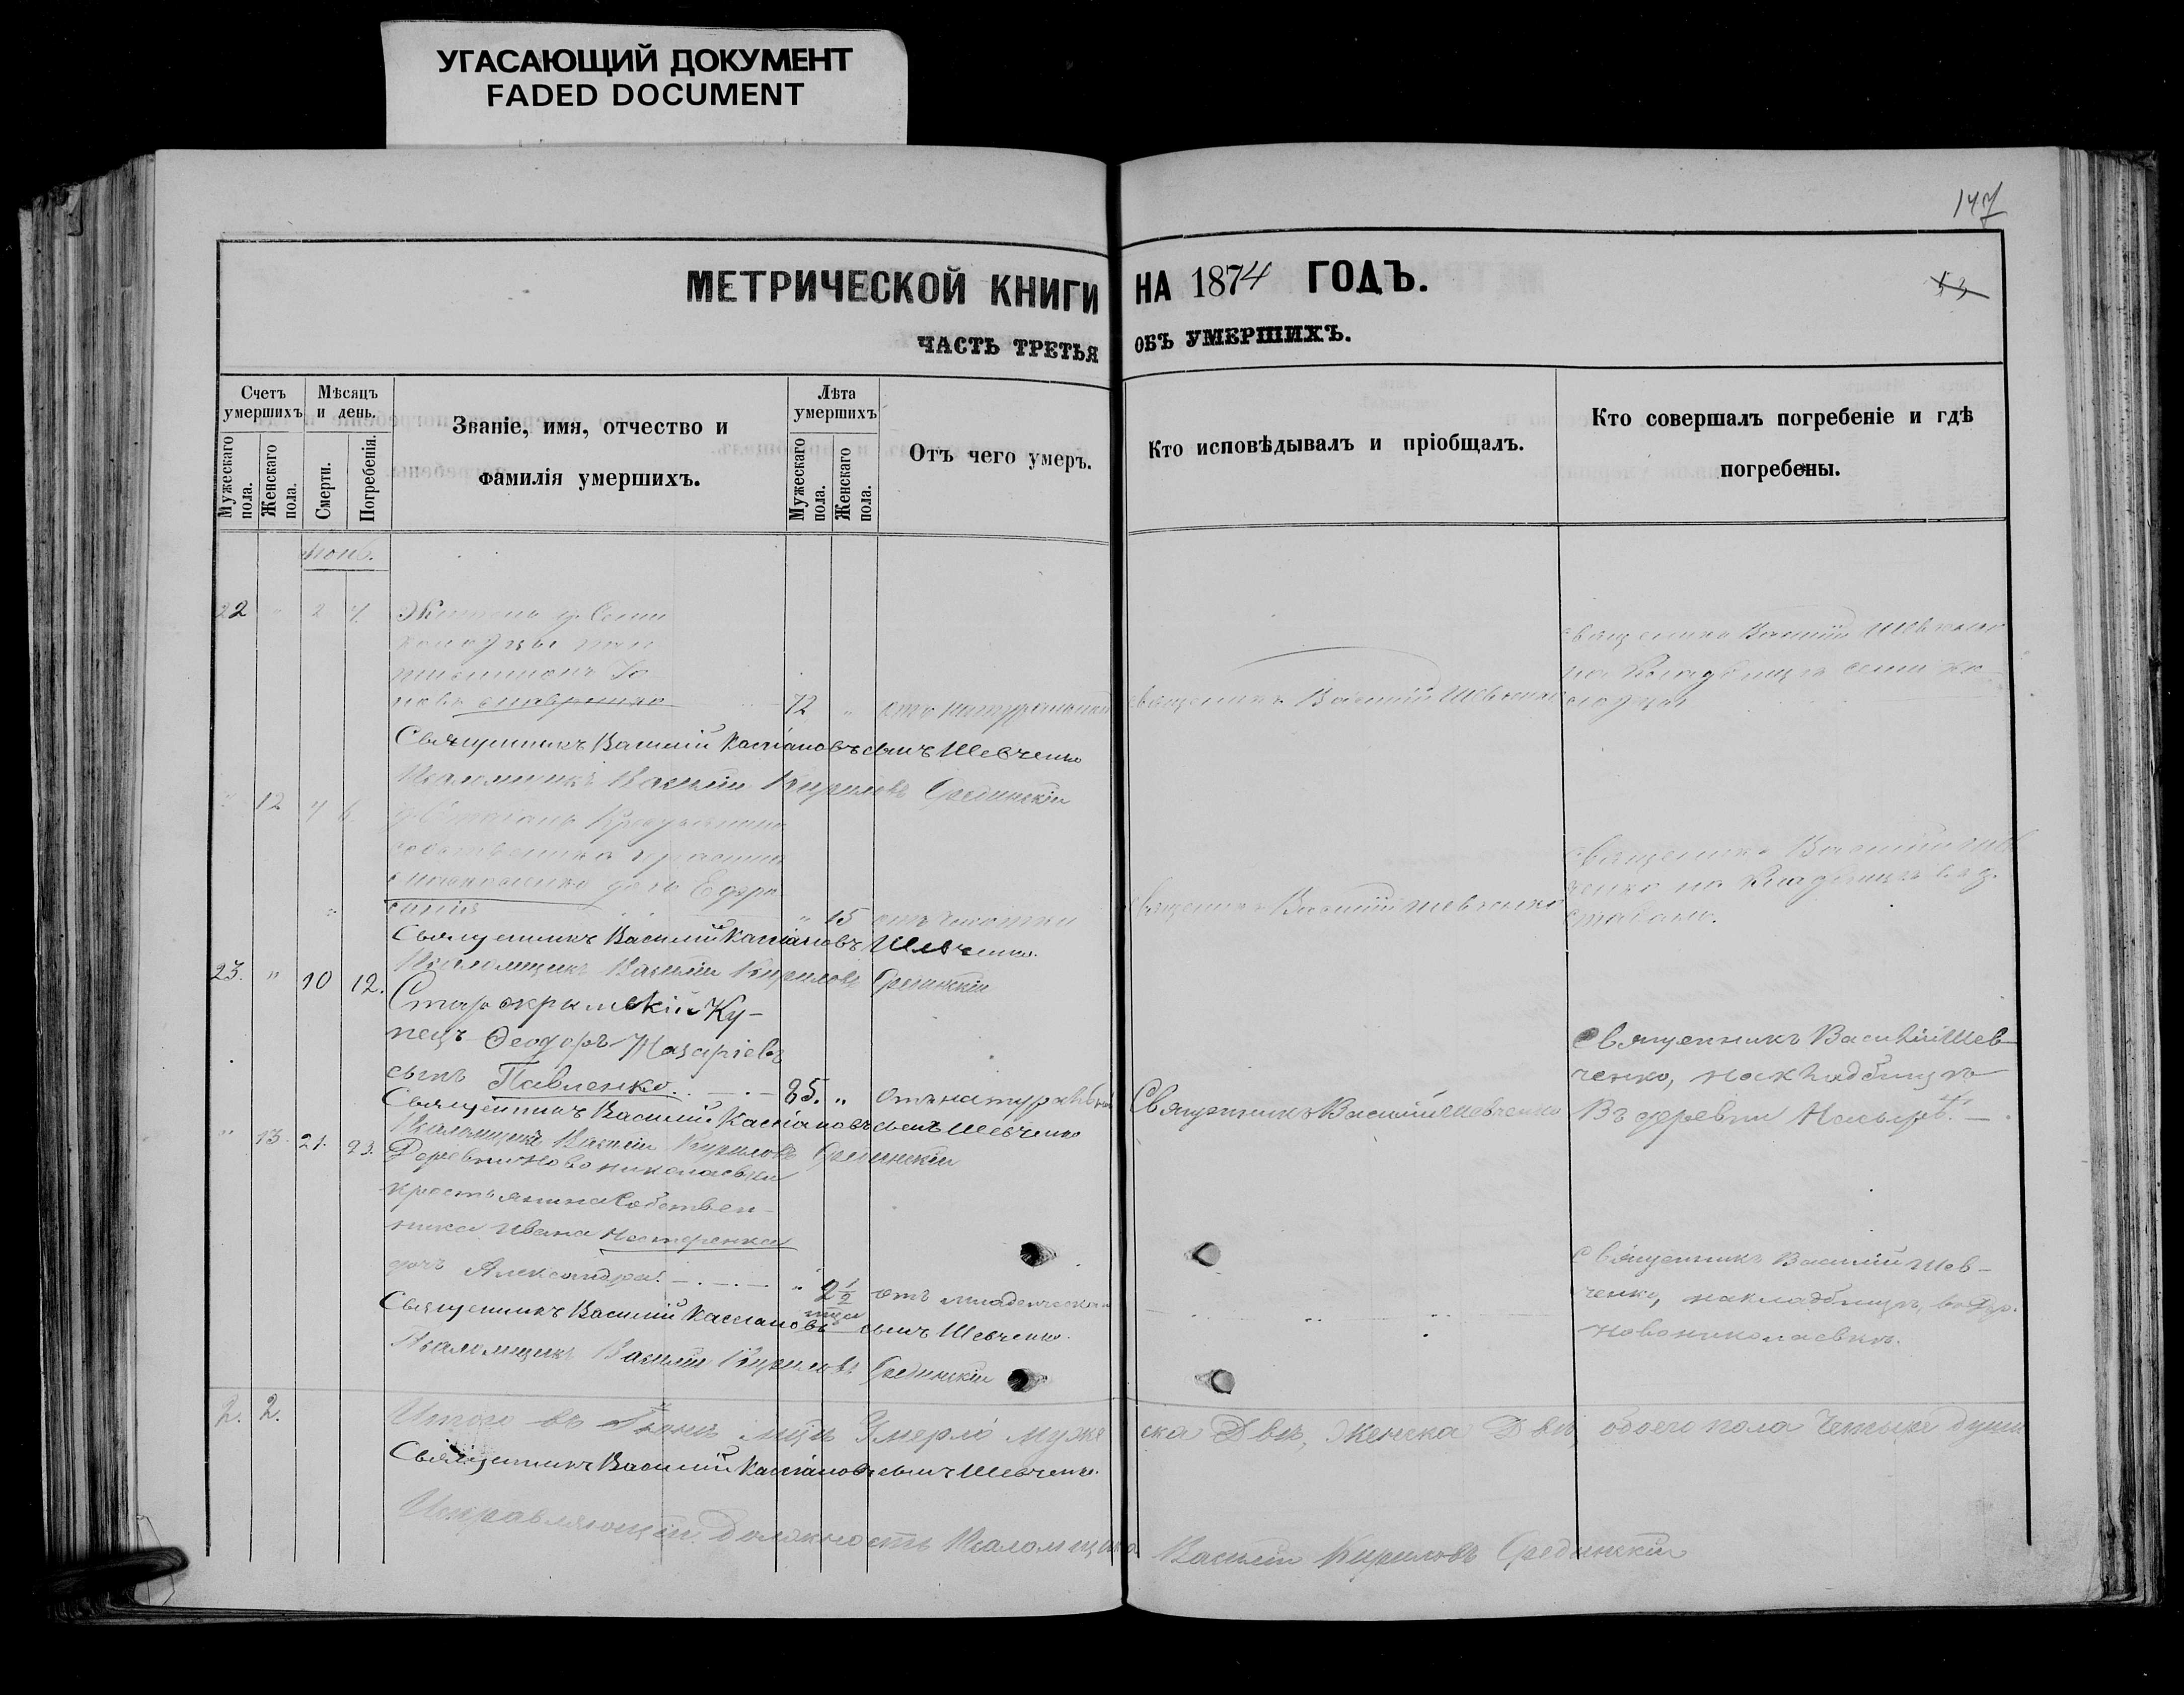 УГАСАЮЩИЙ ДОКУМЕНТ
FADED DOCUMENT
147
МЕТРИЧЕСКОЙ КНИГИ НА 1874 ГОДЪ.
53
ЧАСТЬ ТРЕТЬЯ ОБЪ УМЕРШИХЪ.
Счетъ умершихъ
Мужескаго пола.
Женскаго пола.
Мѣсяцъ и день.
Смерти.
Погребенія.
Званіе, имя, отчество и фамилія умершихъ.
Лѣта умершихъ
Мужескаго пола.
Женскаго пола.
Отъ чего умеръ.
Кто исповѣдывалъ и пріобщалъ.
Кто совершалъ погребеніе и гдѣ погребены.
22 " 2 4.
72 " отъ натуральной
Священникъ Василій Шевченко
Священникъ Василій Шевченко
на Кладбищѣ
Священникъ Василій Кассіановъ сынъ Шевченко
Псаломщикъ Василій Кириловъ Срединскій
" 12 4 6.
" 15 отъ чахотки
Священникъ Василій Шевченко
Священникъ Василій Шев
ченко на Кладбищѣ
Священникъ Василій Кассіановъ Шевченко.
Псаломщикъ Василій Кириловъ Срединскій
23. " 10 12.
Старокрымскій Ку-
пецъ Ѳеодоръ Назаріевъ
сынъ Павленко.
85. " Отъ натуральной
Священникъ Василій Шевченко
Священникъ Василій Шев-
ченко, на кладбищѣ
Въ деревни
Священникъ Василій Кассіановъ сынъ Шевченко
Псаломщикъ Василій Кириловъ Срединскій
" 13. 21. 23.
Деревни Новониколаевки
крестьянина Собствен-
ника Ивана Нестеренка
дочь Александра.
" 2 1/2 отъ младенческой
Священникъ Василій Шев-
ченко, на кладбищѣ, въ Дер.
Новониколаевкѣ.
Священникъ Василій Кассіановъ сынъ Шевченко.
Псаломщикъ Василій Кириловъ Срединскій
2. 2.
Итого въ Іюнѣ мцѣ Умерло мужеска Двѣ, Женска Двѣ, обоего пола Четыре души
Священникъ Василій Кассіановъ сынъ Шевченко.
Исправляющій должность Псаломщика Василій Кириловъ Срединскій